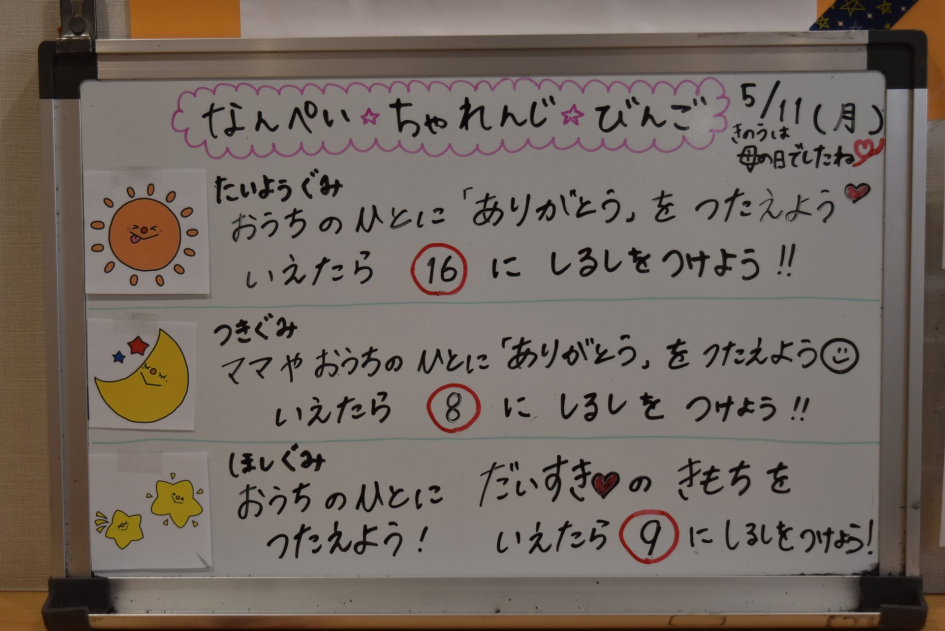 なんぺい☆ちゃれんじ☆びんご
5/11(月)
きのうは
母の日でしたね
たいようぐみ
おうちのひとに「ありがとう」を つたえよう
いえたら 16 に しるしをつけよう!!
つきぐみ
ママやおうちのひとに「ありがとう」をつたえよう
いえたら 8 に しるしを つけよう!!
ほしぐみ
おうちのひとに だいすき♥の きもちを
つたえよう! いえたら 9 にしるしをつけよう!